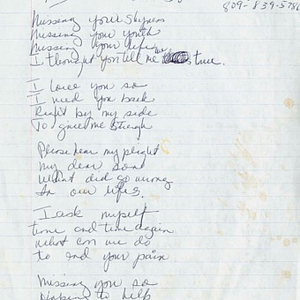 809-839-578
Missing your shyness
Missing your youth
Missing your life
I thought you tell me true.
I love you so
I need you back
Right by my side
To give me strength
Please hear my plight
My dear sons
What did go wrong
In our lifes.
I ask myself
time and time again
what can we do
to end your pain
Missing you so
to help